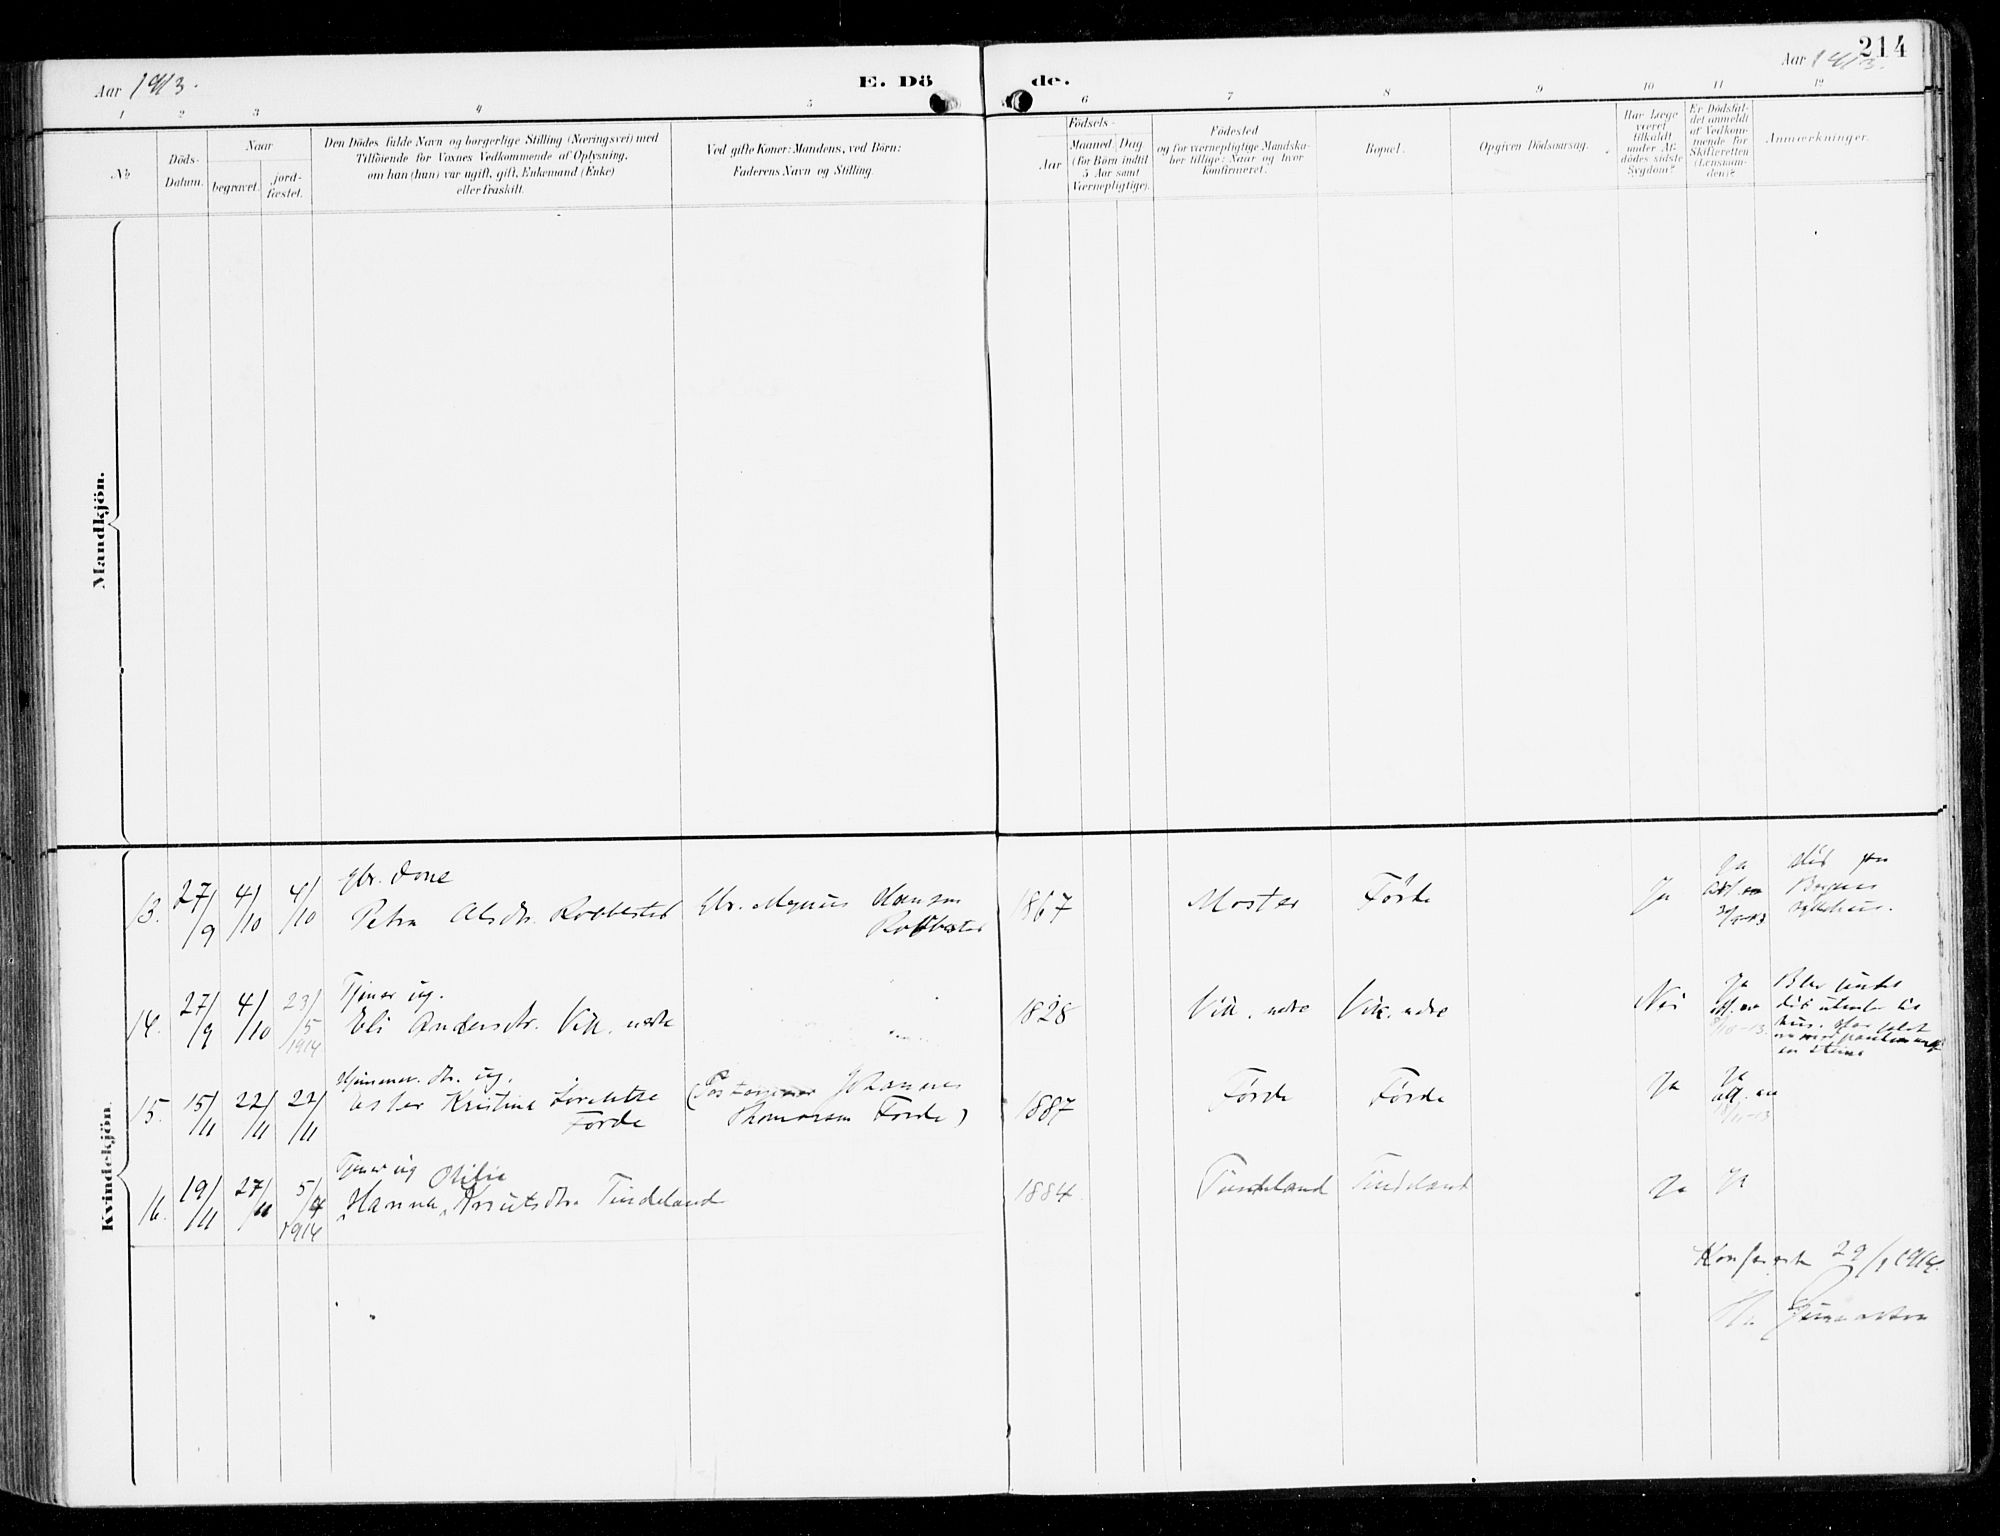 Aar 1913.
E. Dö
de.
Aar 1913.
214
1 2 3 4 5 6 7 8 9 10 11 12
No
Döds-
Datum.
Naar
begravet.
jord-
fæstet.
Den Dödes fulde Navn og borgerlige Stilling (Næringsvei) med
Tilföiende for Voxnes Vedkommende af Oplysning,
om han (hun) var ugift, gift, Enkemand (Enke)
eller fraskilt.
Ved gifte Koner: Mandens, ved Börn:
Faderens Navn og Stilling.
Födsels-
Aar
Maaned. Dag
(for Börn indtil
5 Aar samt
Værnepligtige).
Födested
og for værnepligtige Mandska-
ber tillige: Naar og hvor
konfirmeret.
Bopæl.
Opgiven Dödsaarsag.
Har Læge
været
tilkaldt
under Af-
dödes sidste
Sygdom?
Er Dödsfal-
det anmeldt
af Vedkom-
mende for
Skifteretten
(Lensman-
den)?
Anmærkninger.
Mandkjön.
Kvindekjön.
Gbr. kone
13. 27/9 4/10 4/10 Petra Olsdtr. Robbestad Gbr. Magnus Hansen
Robbestad
1867 Moster Førde Ja Ja
Død på
Bergens
sykehus.
Tjener ug.
14. 27/9 4/10 23/5 1914 Eli Andersdtr. Vik, nedre
1828 Vik, nedre Vik, nedre Nei Ja
Blev fundet
død utenfor sit
hus.
en stene
Hjemmev. dtr. ug.
15. 15/11 22/11 22/11 Ester Kristine Lorentze
Førde
Johannes
Thomassen Førde)
1887 Førde Førde Ja Ja
Tjener ug Otilie
16. 19/11 27/11 5/4 1914 Hanna Knutsdtr. Tindeland
1884 Tindeland Tindeland Ja Ja
Konfererte 29/1 1914.